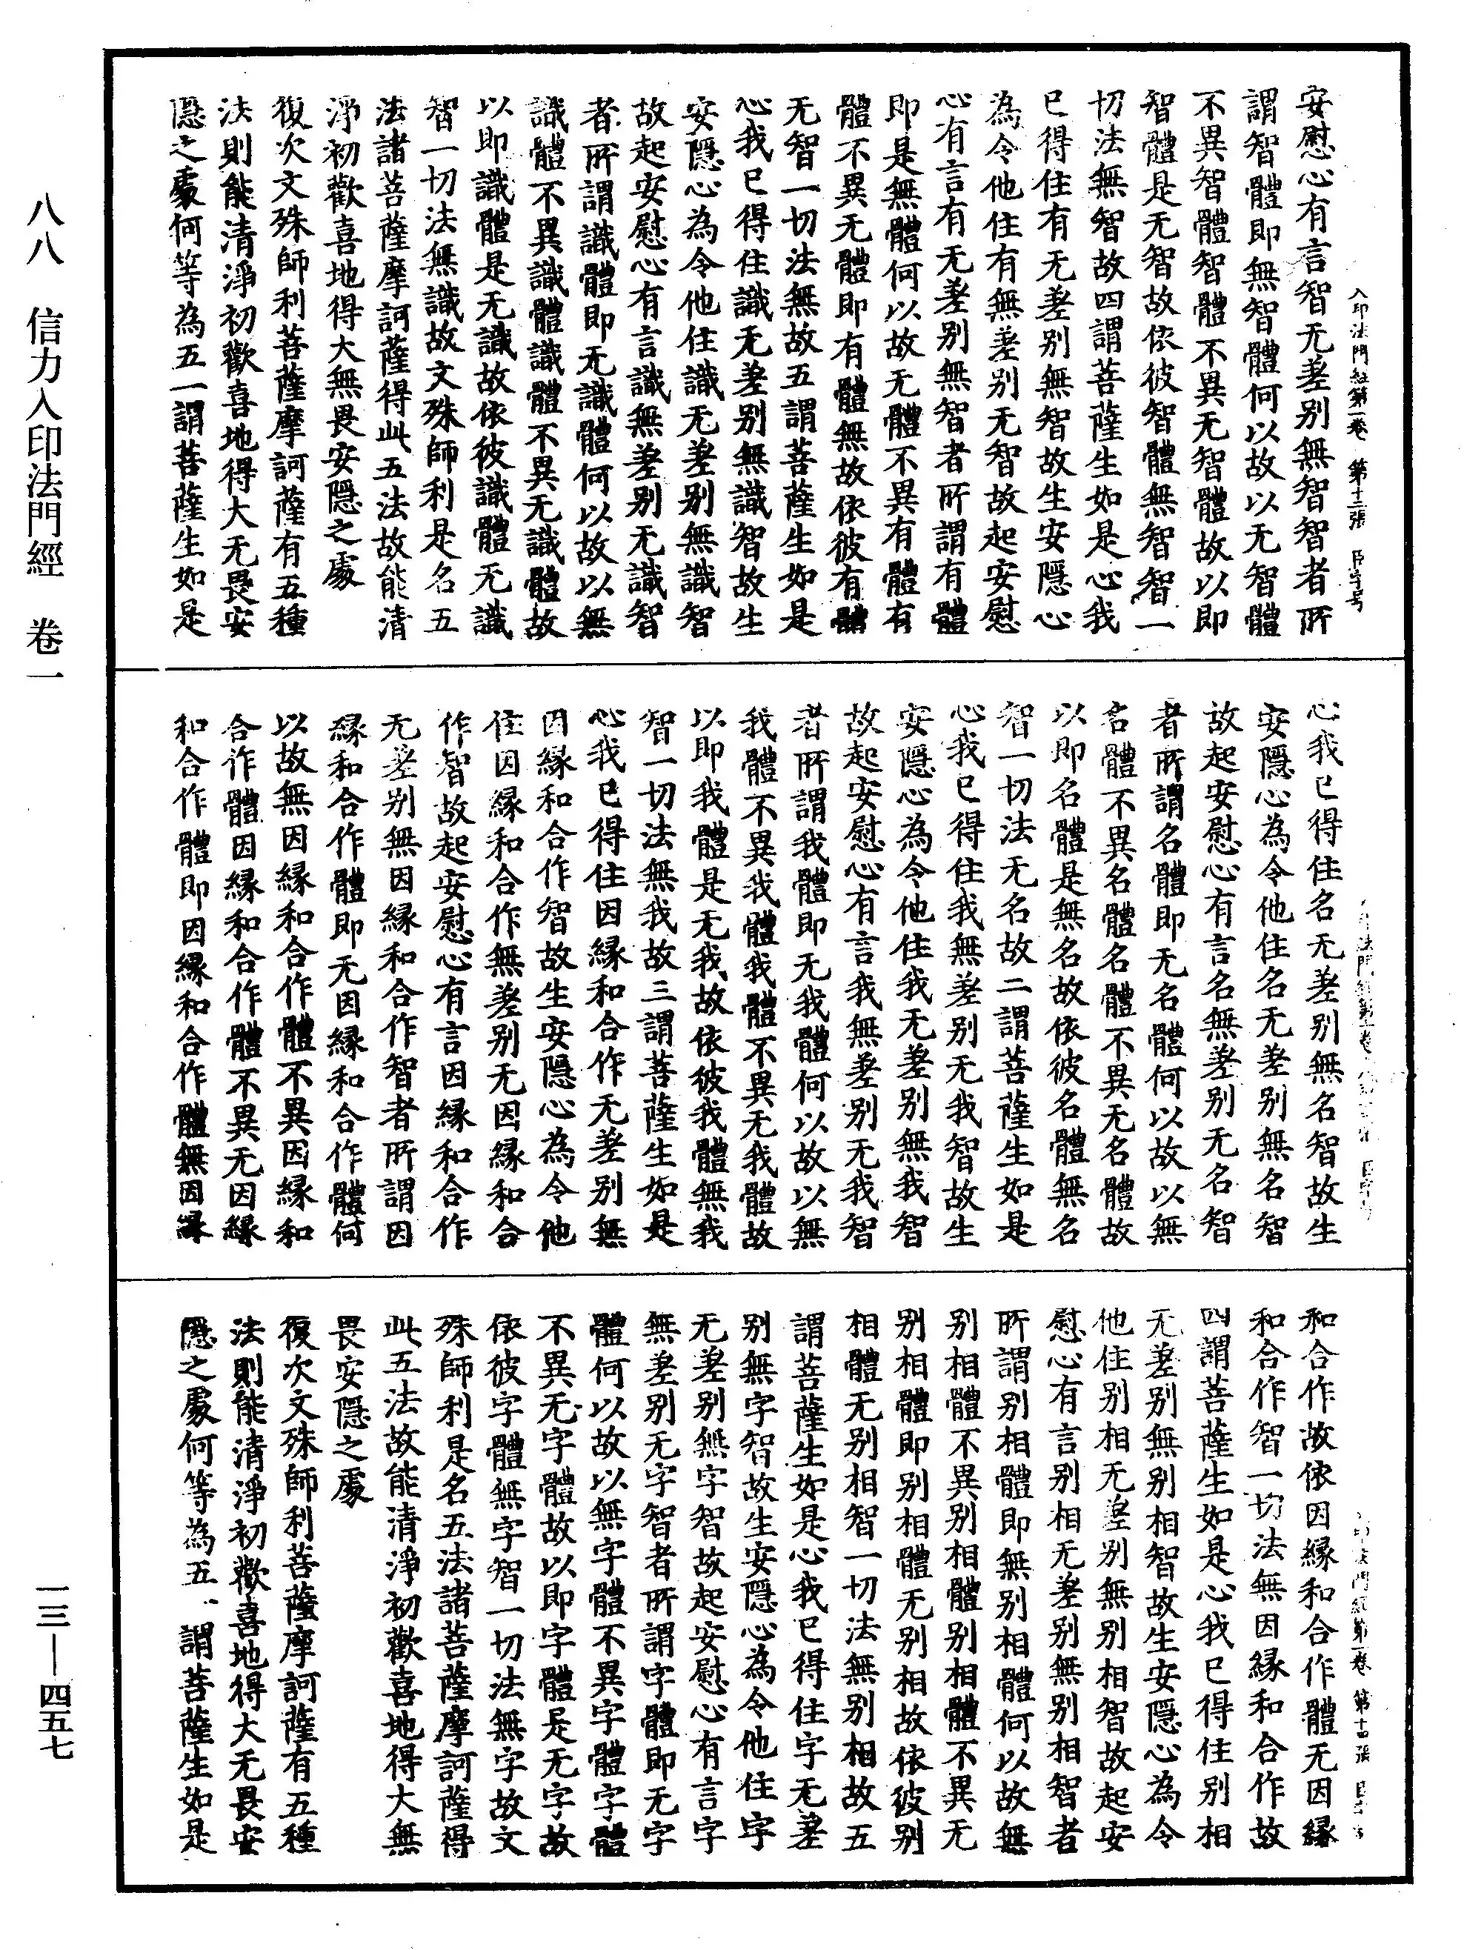 入印法門經第一卷　第十三張　臣字号
安慰心有言智无差别無智智者所
謂智體即無智體何以故以无智體
不異智體智體不異无智體故以即
智體是无智故依彼智體無智智一
切法無智故四謂菩薩生如是心我
已得住有无差别無智故生安隱心
為令他住有無差别无智故起安慰
心有言有无差别無智者所謂有體
即是無體何以故无體不異有體有
體不異无體即有體無故依彼有體
无智一切法無故五謂菩薩生如是
心我已得住識无差别無識智故生
安隱心為令他住識无差别無識智
故起安慰心有言識無差别无識智
者所謂識體即无識體何以故以無
識體不異識體識體不異无識體故
以即識體是无識故依彼識體无識
智一切法無識故文殊師利是名五
法諸菩薩摩訶薩得此五法故能清
淨初歡喜地得大無畏安隱之處
復次文殊師利菩薩摩訶薩有五種
法則能清淨初歡喜地得大无畏安
隱之處何等為五一謂菩薩生如是
心我已得住名无差别無名智故生
安隱心為令他住名无差别無名智
故起安慰心有言名無差别无名智
者所謂名體即无名體何以故以無
名體不異名體名體不異无名體故
以即名體是無名故依彼名體無名
智一切法无名故二謂菩薩生如是
心我已得住我無差别无我智故生
安隱心為令他住我无差别無我智
故起安慰心有言我無差别无我智
者所謂我體即无我體何以故以無
我體不異我體我體不異无我體故
以即我體是无我故依彼我體無我
智一切法無我故三謂菩薩生如是
心我已得住因縁和合作无差别無
因縁和合作智故生安隱心為令他
住因縁和合作無差别无因縁和合
作智故起安慰心有言因縁和合作
无差别無因縁和合作智者所謂因
縁和合作體即无因縁和合作體何
以故無因縁和合作體不異因縁和
合作體因縁和合作體不異无因縁
和合作體即因縁和合作體無因縁
和合作故依因縁和合作體无因縁
和合作智一切法無因縁和合作故
四謂菩薩生如是心我已得住别相
无差别無别相智故生安隱心為令
他住别相无差别無别相智故起安
慰心有言别相无差别無别相智者
所謂别相體即無别相體何以故無
别相體不異别相體别相體不異无
别相體即别相體无别相故依彼别
相體无别相智一切法無别相故五
謂菩薩生如是心我已得住字无差
别無字智故生安隱心為令他住字
无差别無字智故起安慰心有言字
無差别无字智者所謂字體即无字
體何以故以無字體不異字體字體
不異无字體故以即字體是无字故
依彼字體無字智一切法無字故文
殊師利是名五法諸菩薩摩訶薩得
此五法故能清淨初歡喜地得大無
畏安隱之處
復次文殊師利菩薩摩訶薩有五種
法則能清淨初歡喜地得大无畏安
隱之處何等為五一謂菩薩生如是
八八　信力入印法門經　卷一
一三—四五七